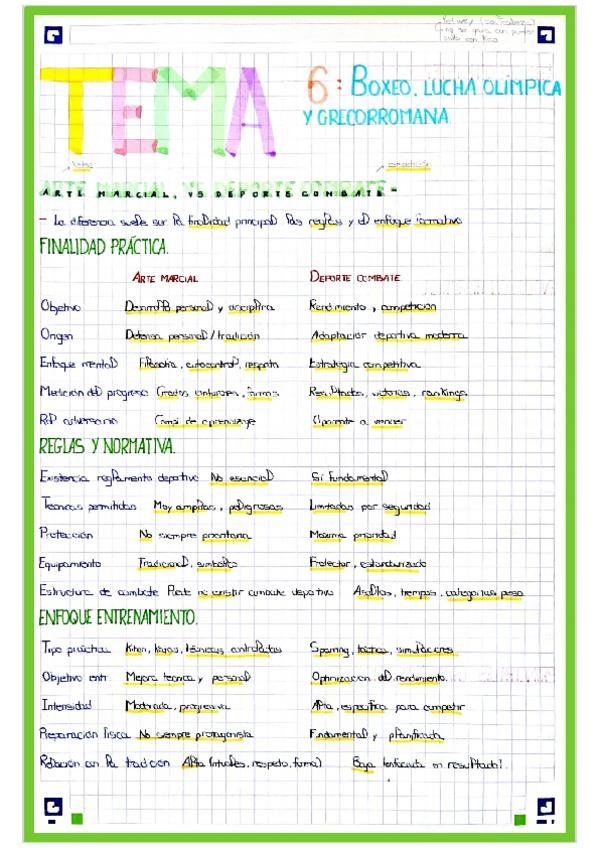 TEMA
6: BOXEO, LUCHA OLÍMPICA
Y GRECORROMANA
ARTE MARCIAL, VS DEPORTE COMBATE-
- La diferencia suele ser la finalidad principal las reglas y el enfoque formativo
FINALIDAD PRÁCTICA.
ARTE MARCIAL DEPORTE COMBATE
Objetivo Desarrollo personal y disciplina Rendimiento, competición
Origen Defensa personal/tradición Adaptación deportiva moderna
Enfoque mental Filosofía, autocontrol, respeto Estrategia competitiva
Medición del progreso Grados cinturones, formas Resultados, victorias, rankings
Rol adversario Compi de aprendizaje Oponente a vencer
REGLAS Y NORMATIVA.
Existencia reglamento deportivo No esencial Si fundamental
Técnicas permitidas Muy amplias, peligrosas Limitadas por seguridad
Protección No siempre prioritaria Máxima prioridad
Equipamiento Tradicional, simbólico Protector, estandarizado
Estructura de combate Puede no existir combate deportivo Asaltos, tiempos, categorías peso
ENFOQUE ENTRENAMIENTO.
Tipo práctica Kihon, katas, técnicas controladas Sparring, táctica, simulaciones
Objetivo entr Mejora técnica y personal Optimización del rendimiento.
Intensidad Moderada, progresiva Alta, específica para competir
Preparación física No siempre protagonista Fundamental y planificada
Relación con la tradición Alta (rituales, respeto, forma) Baja (enfocada en resultado).